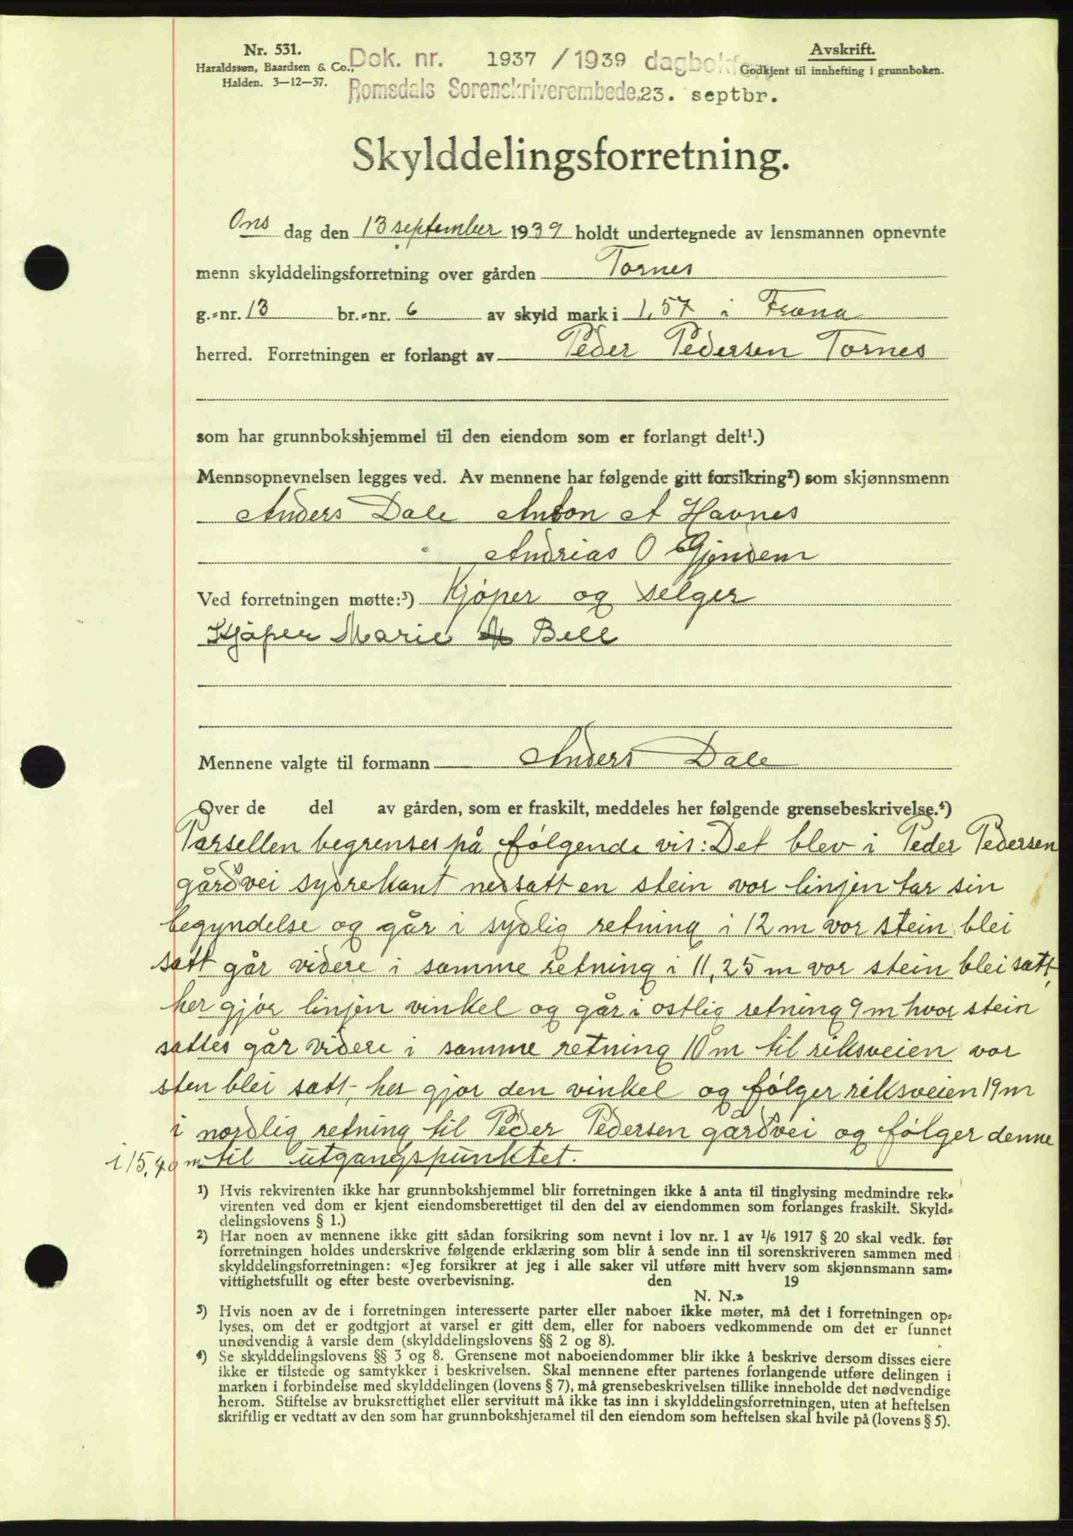 Nr. 531.
Haraldssøn, Baardsen & Co.,
Halden. 3—12—37.
Dok. nr. 1937 / 1939 dagbok
Romsdals Sorenskriverembede. 23. septbr.
Avskrift.
Godkjent til innhefting i grunnboken.
Skylddelingsforretning.
Ons dag den 13 september 1939 holdt undertegnede av lensmannen opnevnte
menn skylddelingsforretning over gården Tornes
g.=nr. 13 br.=nr. 6 av skyld mark i 1,57 i Fræna
herred. Forretningen er forlangt av Peder Pedersen Tornes
som har grunnbokshjemmel til den eiendom som er forlangt delt¹.)
Mennsopnevnelsen legges ved. Av mennene har følgende gitt forsikring²) som skjønnsmenn
Anders Dale Anton A Havnes
Andrias O Gjendem
Ved forretningen møtte:³) Kjøper og selger
Kjøper Marie Bell
Mennene valgte til formann Anders Dale
Over de del av gården, som er fraskilt, meddeles her følgende grensebeskrivelse.⁴)
Parsellen begrenses på følgende vis: Det blev i Peder Pedersen
gårdvei sydrekant nedsatt en stein vor linjen tar sin
begyndelse og går i sydlig retning i 12 m vor stein blei
satt går videre i samme retning i 11,25 m vor stein blei satt,
her gjør linjen vinkel og går i ostlig retning 9 m hvor stein
sattes går videre i samme retning 10 m til riksveien vor
sten blei satt, her gjør den vinkel og følger riksveien 19 m
i nordlig retning til Peder Pedersen gårdvei og følger denne
i 15,40 m til utgangspunktet.
¹) Hvis rekvirenten ikke har grunnbokshjemmel blir forretningen ikke å anta til tinglysing medmindre rek=
virenten ved dom er kjent eiendomsberettiget til den del av eiendommen som forlanges fraskilt. Skyld=
delingslovens § 1.)
²) Har noen av mennene ikke gitt sådan forsikring som nevnt i lov nr. 1 av 1/6 1917 § 20 skal vedk. før
forretningen holdes underskrive følgende erklæring som blir å sende inn til sorenskriveren sammen med
skylddelingsforretningen: «Jeg forsikrer at jeg i alle saker vil utføre mitt hverv som skjønnsmann sam=
vittighetsfullt og efter beste overbevisning. den 19
N. N.»
³) Hvis noen av de i forretningen interesserte parter eller naboer ikke møter, må det i forretningen op=
lyses, om det er godtgjort at varsel er gitt dem, eller for naboers vedkommende om det er funnet
unødvendig å varsle dem (skylddelingslovens §§ 2 og 8).
⁴) Se skylddelingslovens §§ 3 og 8. Grensene mot naboeiendommer blir ikke å beskrive dersom disses eiere
ikke er tilstede og samtykker i beskrivelsen. Skal mennene efter partenes forlangende utføre delingen i
marken i forbindelse med skylddelingen (lovens § 7), må grensebeskrivelsen tillike inneholde det nødvendige
herom. Stiftelse av bruksrettighet eller servitutt må ikke tas inn i skylddelingsforretningen, uten at heftelsen
skriftlig er vedtatt av den som har grunnbokshjemmel til den eiendom som heftelsen skal hvile på (lovens § 5).